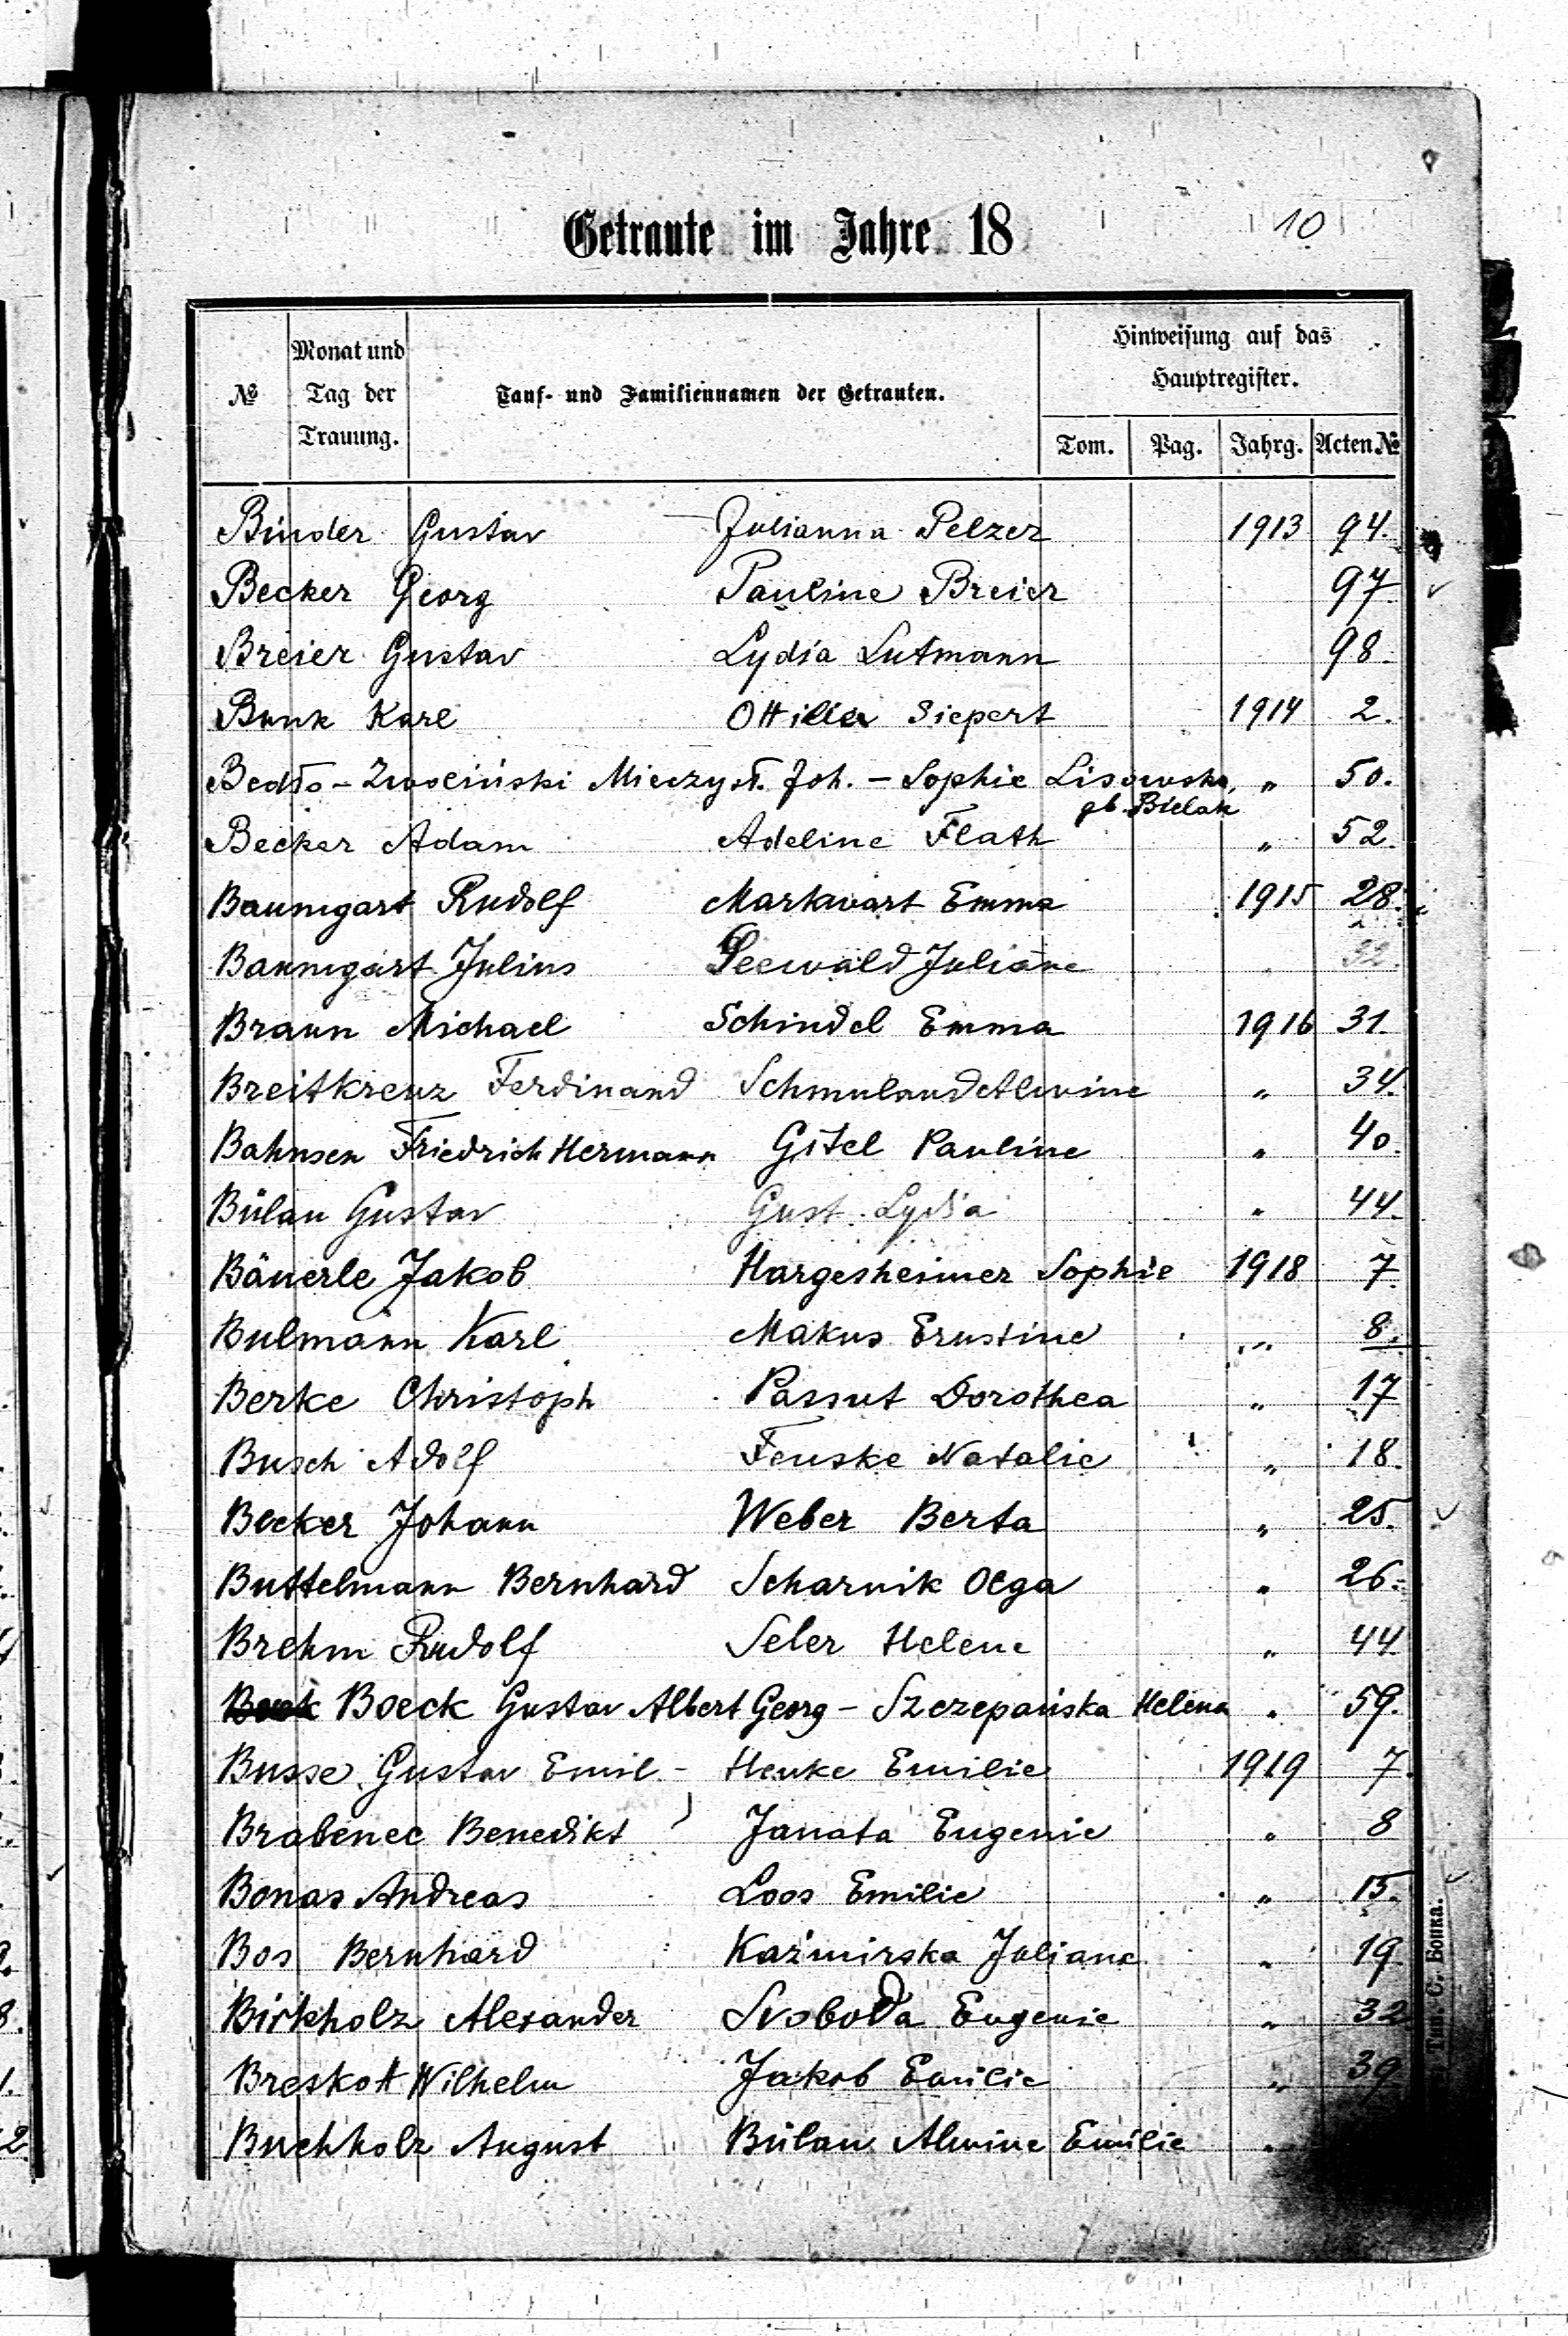 Getraute im Jahre 18
10
№ Monat und Tag der Trauung. Tauf- und Familiennamen der Getrauten. Hinweisung auf das Hauptregister.
Tom. Pag. Jahrg. Acten №
Binder Gustav Julianna Pelzer 1913 94.
Becker Georg Pauline Breier 97
Breier Gustav Lydia Lutmann 98.
Bunk Karl Ottilie Siepert 1914 2.
Bedło-Zwoliński Mieczysł. Joh. - Sophie Lisowska, „ 50.
gb. Bielak
Becker Adam Adeline Flath „ 52.
Baumgart Rudolf Markwart Emma 1915 28.
Baumgart Julius Seewald Juliane 32.
Braun Michael Schindel Emma 1916 31.
Breitkreuz Ferdinand Schmuland Alwine „ 34.
Bahnsen Friedrich Hermann Gitel Pauline „ 40.
Bülau Gustav Gust Lydia „ 44.
Bäuerle Jakob Hargesheimer Sophie 1918 7.
Bulmann Karl Makus Ernstine „ 8.
Berke Christoph Passut Dorothea „ 17
Busch Adolf Fenske Natalie „ 18.
Becker Johann Weber Berta „ 25.
Buttelmann Bernhard Scharnik Olga „ 26.
Brehm Rudolf Seler Helene „ 44
Boeck Gustav Albert Georg - Szczepańska Helena „ 59.
Busse Gustav Emil - Henke Emilie 1919 7.
Brabenec Benedikt Janata Eugenie „ 8
Bonas Andreas Loos Emilie „ 15.
Bos Bernhard Kaźmirska Juliane „ 19.
Birkholz Alexander Svoboda Eugenie „ 32
Breskott Wilhelm Jakob Emilie „ 39
Buchholz August Bülau Alwine Emilie „
Тип. С. Бонка.